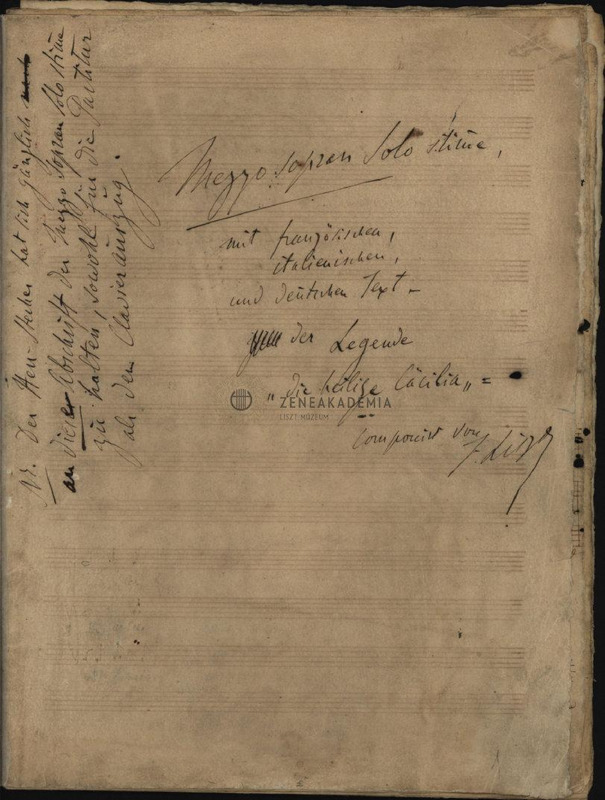 Mezzo Sopran Solo Stime,
mit französischen,
italienischen,
und deutschen Text –
der Legende
„die heilige Cäcilia„ =
componirt von
F Liszt
ZENEAKADÉMIA
LISZT MÚZEUM
Der Herr Stecher hat sich gänzlich
an dieser Abschrift der Mezzo Sopran Solo Stime
zu halten, sowohl für die Partitur
als den Clavierauszug.